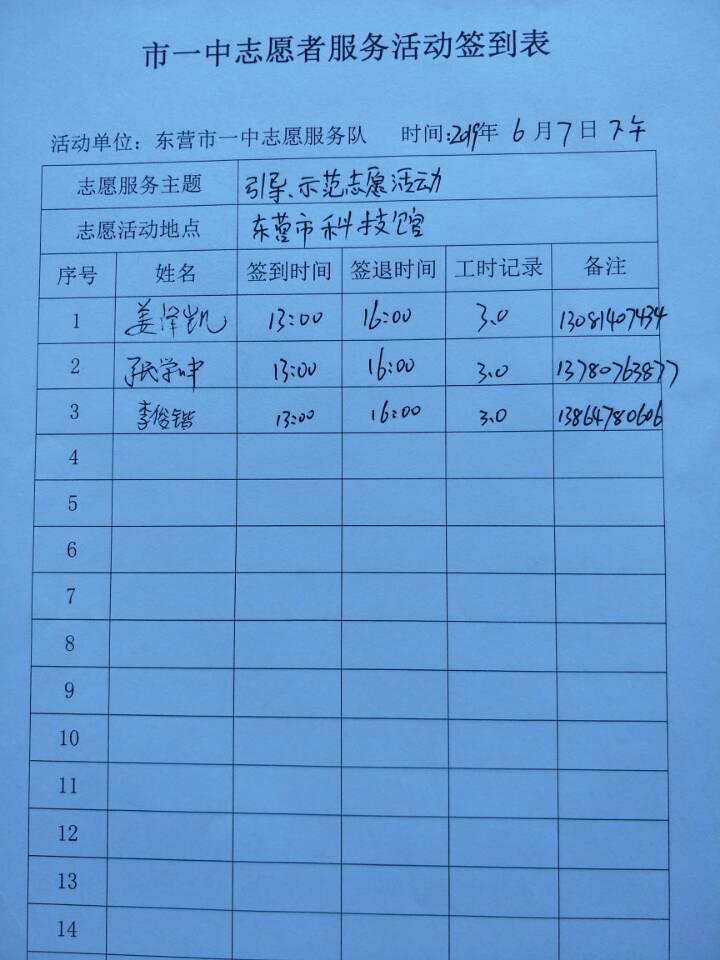 市一中志愿者服务活动签到表
活动单位：东营市一中志愿服务队 时间:2019年 6 月 7 日 下午
志愿服务主题 引导、示范志愿活动
志愿活动地点 东营市科技馆
序号 姓名 签到时间 签退时间 工时记录 备注
1 姜泽凯 13:00 16:00 3.0 13081407434
2 张学坤 13:00 16:00 3.0 13780763877
3 李俊锴 13:00 16:00 3.0 13864780606
4
5
6
7
8
9
10
11
12
13
14